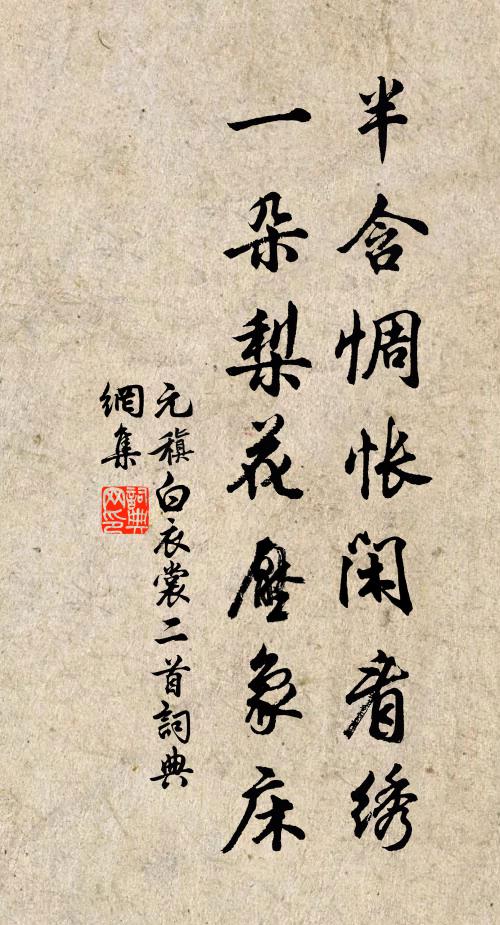 半含惆怅闲看绣
一朵梨花压象床
元稹白衣裳二首詞典
網集
詞典网印